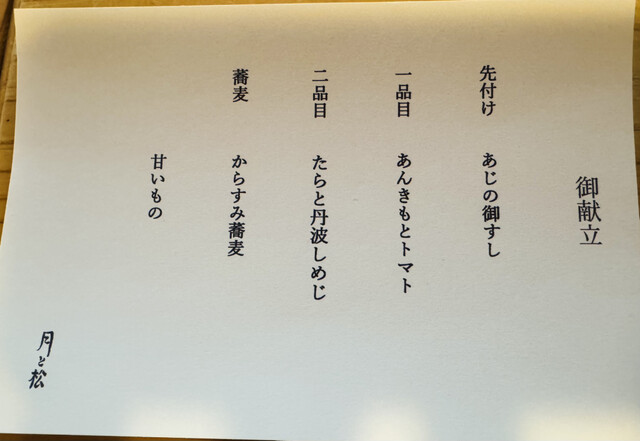 御献立
先付け　あじの御すし
一品目　あんきもとトマト
二品目　たらと丹波しめじ
蕎麦　からすみ蕎麦
甘いもの
月と松